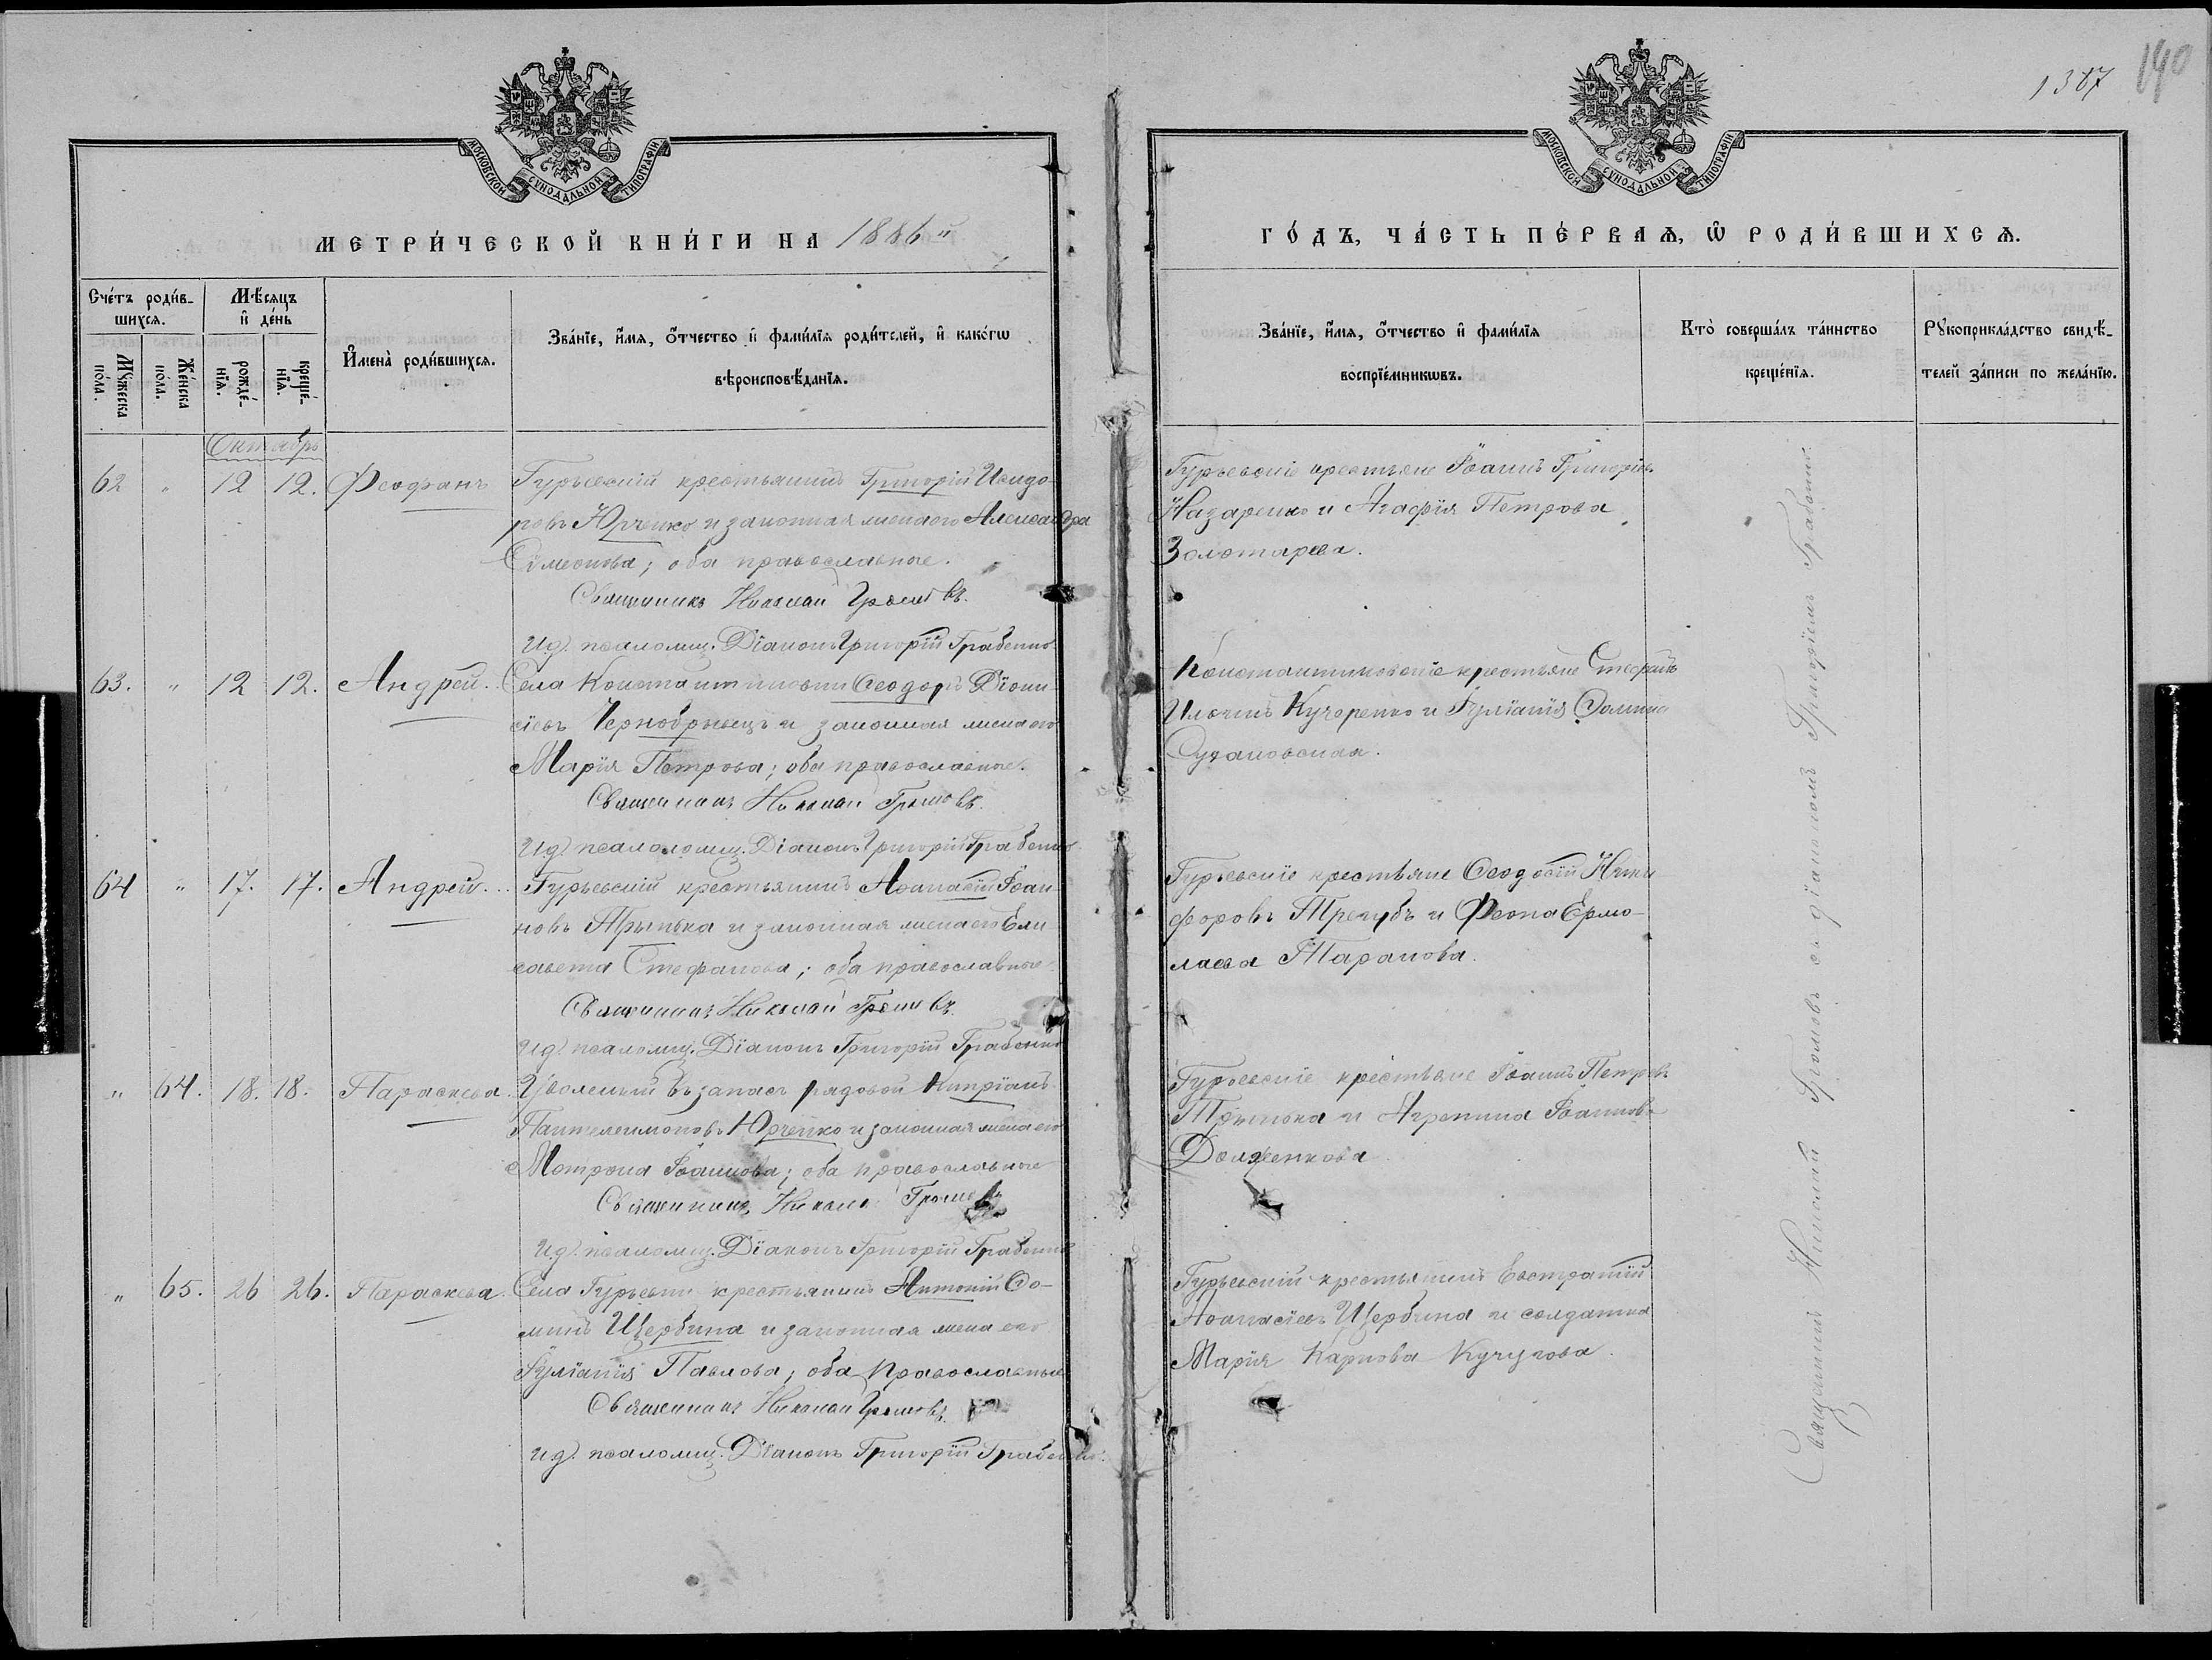 1387
140
МОСКОВСКОЙ СУНОДАЛЬНОЙ ТИПОГРАФІИ
МОСКОВСКОЙ СУНОДАЛЬНОЙ ТИПОГРАФІИ
МЕТРИ́ЧЕСКОЙ КНИ́ГИ НА 1886й
ГО́ДЪ, ЧА́СТЬ ПЕ́РВАѦ, Ѡ РОДИ́ВШИХСѦ.
Сче́тъ роди́в-
шихсѧ.
Мꙋ́жеска
по́ла.
Же́нска
по́ла.
Мѣ́сѧцъ
и҆ де́нь
рожде́-
нїѧ.
креще́-
нїѧ.
И҆мена̀ роди́вшихсѧ.
Зва́нїе, и҆́мѧ, ѻ҆́тчество и҆ фами́лїѧ роди́телей, и҆ како́гѡ
вѣроисповѣ́данїѧ.
Зва́нїе, и҆́мѧ, ѻ҆́тчество и҆ фами́лїѧ
воспрїе́мникѡвъ.
Кто̀ соверша́лъ та́инство
креще́нїѧ.
Рꙋкоприкла́дство свидѣ́-
телей за́писи по жела́нїю.
Октябрь
62 " 12 12. Феофанъ
Гурьевскій крестьянинъ Григорій Исидо-
ровъ Юрченко и законная жена его Александра
Симеонова; оба православные.
Священникъ Николай Громовъ.
И.д. псаломщ. Діаконъ Григорій Грабенко
Гурьевскіе крестьяне Іоаннъ Григоріевъ
Назаренко и Агафія Петрова
Золотарева.
63. " 12 12. Андрей.
Села Константиновки Ѳеодоръ Діони-
сіевъ Чернобрывецъ и законная жена его
Марія Петрова; оба православные.
Священникъ Николай Громовъ.
И.д. псаломщ. Діаконъ Григорій Грабенко
Константиновскіе крестьяне Стефанъ
Ильинъ Кучеренко и Іуліанія Ѳомина
Сухановская.
64 " 17. 17. Андрей.
Гурьевскій крестьянинъ Аѳанасій Іоан-
новъ Трынька и законная жена его Ели-
савета Стефанова; оба православные
Священникъ Николай Громовъ.
И.д. псаломщ. Діаконъ Григорій Грабенко
Гурьевскіе крестьяне Ѳеодосій Ники-
форовъ Трегубъ и Феона Ермо-
лаева Таранова.
" 64. 18. 18. Параскева.
Уволеный въ запасъ рядовой Кипріанъ
Пантелеимоновъ Юрченко и законная жена его
Матрона Іоаннова; оба православные
Священникъ Николай Громовъ
И.д. псаломщ. Діаконъ Григорій Грабенко
Гурьевскіе крестьяне Іоаннъ Петровъ
Трынька и Агрепина Іоаннова
Долженкова
" 65. 26 26. Параскева.
Села Гурьевки крестьянинъ Антоній Ѳо-
минъ Щербина и законная жена его
Іуліанія Павлова; оба православные
Священникъ Николай Громовъ.
И.д. псаломщ. Діаконъ Григорій Грабенко.
Гурьевскій крестьянинъ Евстратій
Аѳанасіевъ Щербина и солдатка
Марія Карпова Кучугова.
Священникъ Николай Громовъ съ діакономъ Григоріемъ Грабенко.